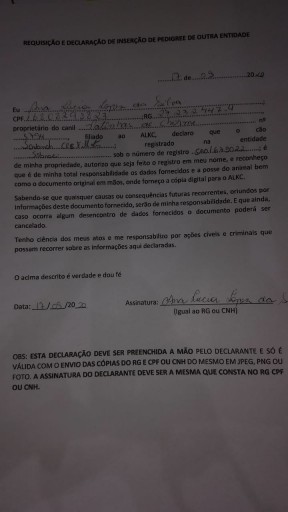 REQUISIÇÃO E DECLARAÇÃO DE INSERÇÃO DE PEDIGREE DE OUTRA ENTIDADE
17 de 03 20
Eu Ana Lucia
CPF RG
proprietário do canil on
filiado ao ALKC, declaro que o cão
registrado na entidade
sob o número de registro é
de minha propriedade, autorizo que seja feito o registro em meu nome, e reconheço
que é de minha total responsabilidade os dados fornecidos e a posse do animal bem
como o documento original em mãos, onde forneço a cópia digital para o ALKC.
Sabendo-se que quaisquer causas ou consequências futuras recorrentes, oriundos por
informações deste documento fornecido, serão de minha responsabilidade. E que ainda,
caso ocorra algum desencontro de dados fornecidos o documento poderá ser
cancelado.
Tenho ciência dos meus atos e me responsabilizo por ações cíveis e criminais que
possam recorrer sobre as informações aqui declaradas.
O acima descrito é verdade e dou fé.
Data: 17/03/2020 Assinatura: Ana Lucia
(Igual ao RG ou CNH)
OBS: ESTA DECLARAÇÃO DEVE SER PREENCHIDA A MÃO PELO DECLARANTE E SÓ É
VÁLIDA COM O ENVIO DAS CÓPIAS DO RG E CPF OU CNH DO MESMO EM JPEG, PNG OU
FOTO. A ASSINATURA DO DECLARANTE DEVE SER A MESMA QUE CONSTA NO RG CPF
OU CNH.